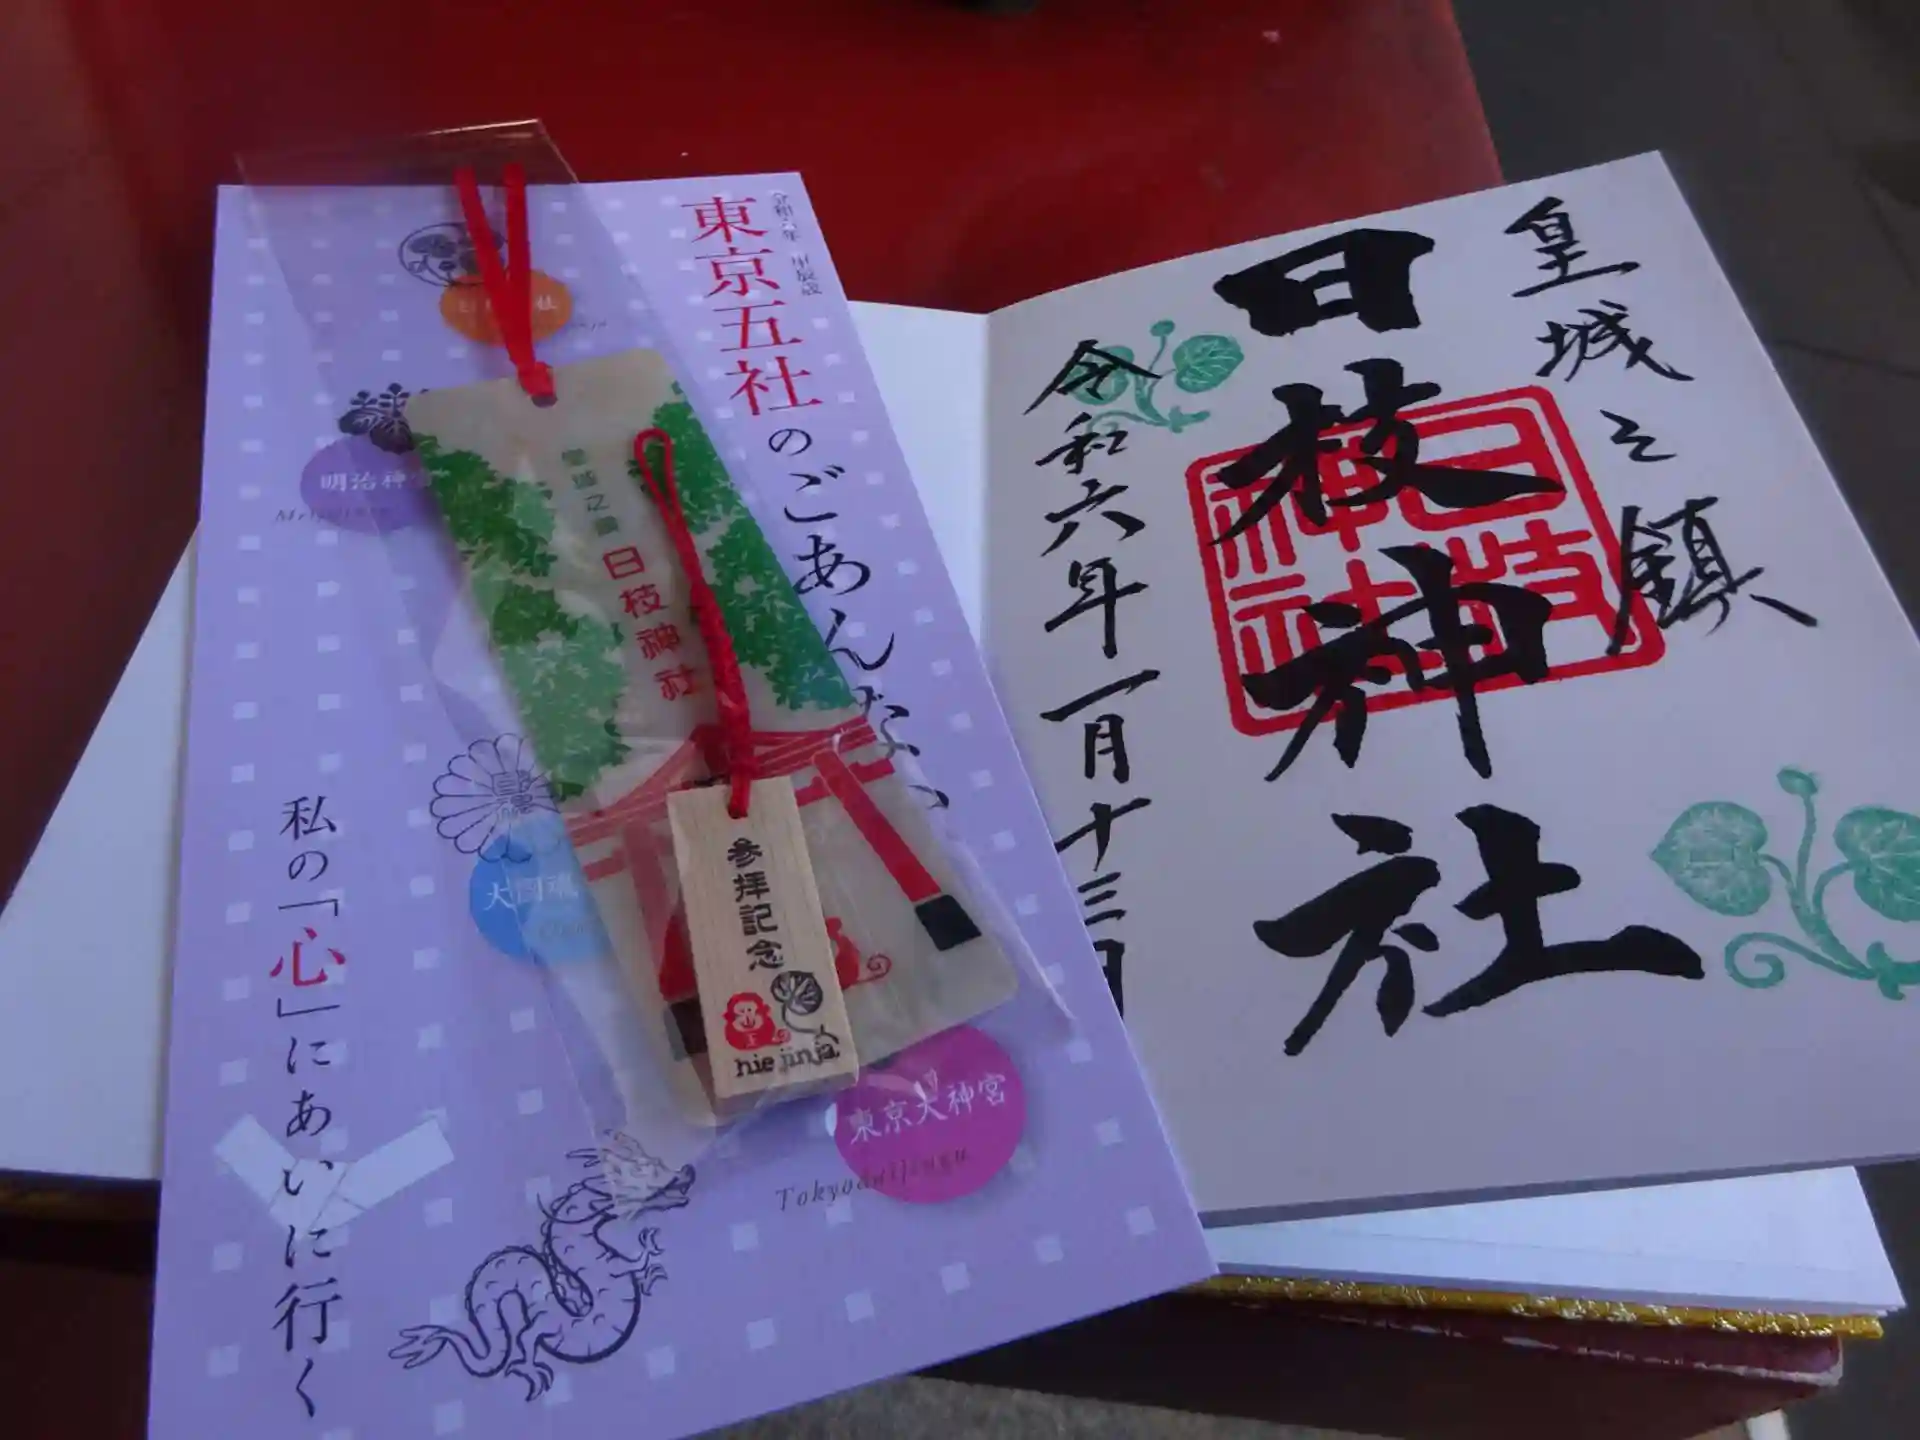 令和六年 甲辰歳
東京五社のごあんない
明治神宮
東京大神宮
Tokyodaijingu
私の「心」にあいに行く
皇城之鎮
日枝神社
参拝記念
hie jinja
皇城之鎮
日枝神社
日枝神社
令和六年一月十三日